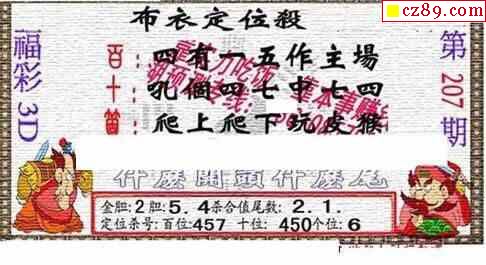 cz89.com
布衣定位殺
福彩3D
第207期
百:四有一五作主場
十:吼個四七中七四
笛:爬上爬下玩皮猴
什麽開頭什麽尾
金胆:2胆:5.4杀合值尾数:2.1.
定位杀号:百位457 十位:450个位:6